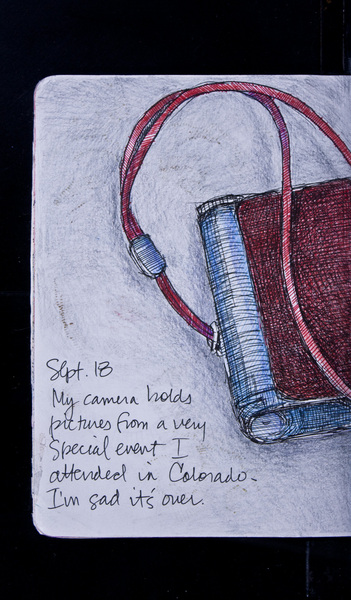 Sept. 18
My camera holds
pictures from a very
Special event I
attended in Colorado.
I'm sad it's over.